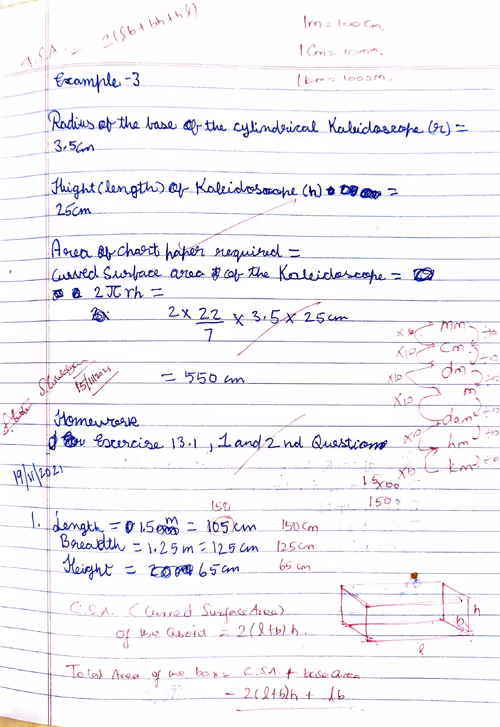 T.S.A. = 2(lb+bh+hl)
1m = 100cm.
1cm = 10mm.
1km = 1000m.
Example-3
Radius of the base of the cylindrical Kaleidoscope (r) =
3.5cm
Height (length) of Kaleidoscope (h) =
25cm
Area of chart paper required =
Curved Surface area of the Kaleidoscope =
2πrh =
2 × 22/7 × 3.5 × 25 cm
= 550 cm
15/11/2021
×10 mm ÷10
×10 cm ÷10
×10 dm ÷10
×10 m
dam ÷10
×10 hm ÷10
×10 km
Homework
Exercise 13.1, 1 and 2nd Question
19/11/2021
1.5×100
150
150
1. Length = 1.5 m = 105cm 150cm
Breadth = 1.25 m = 125cm 125cm
Height = 65cm 65cm
C.S.A. (Curved Surface Area)
of the Cuboid = 2(l+b)h.
h
b
l
Total Area of the box = C.S.A + base Area
= 2(l+b)h + lb